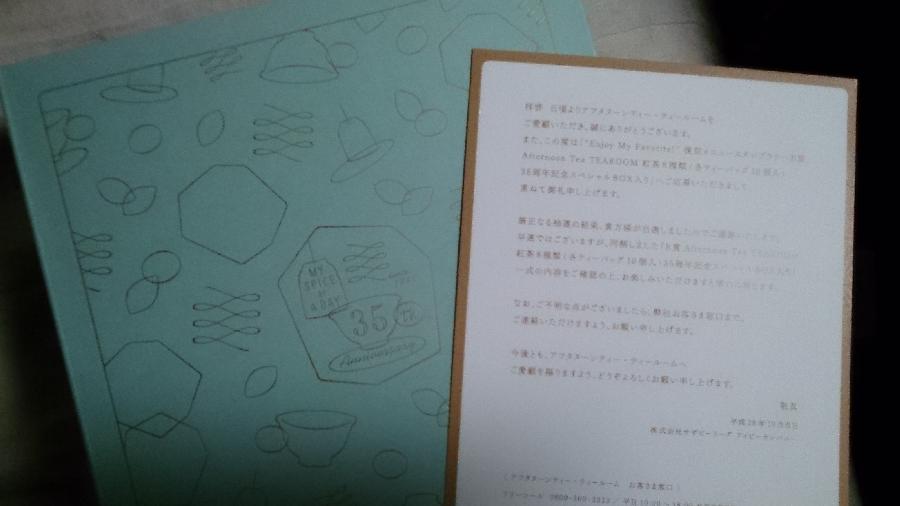 MY
SPICE
of
A DAY
35
th
Anniversary
拝啓 日頃よりアフタヌーンティー・ティールームを
ご愛顧いただき、誠にありがとうございます。
また、この度は「"Enjoy My Favorite!" 復刻メニュースタンプラリー
Afternoon Tea TEAROOM 紅茶8種類(各ティーバッグ10個入)
35周年記念スペシャルBOX入り」へご応募いただきまして
重ねて御礼申し上げます。
厳正なる抽選の結果、貴方様が当選しましたのでご通知いたします。
早速ではございますが、同梱しました「B賞 Afternoon Tea TEAROOM
紅茶8種類(各ティーバッグ10個入)35周年記念スペシャルBOX入り」
一式の内容をご確認の上、お楽しみいただけますと幸いに存じます。
なお、ご不明な点がございましたら、弊社お客さま窓口まで、
ご連絡いただけますよう、お願い申し上げます。
今後とも、アフタヌーンティー・ティールームへ
ご愛顧を賜りますよう、どうぞよろしくお願い申し上げます。
敬具
平成28年10月吉日
株式会社サザビーリーグ アイビーカンパニー
(アフタヌーンティー・ティールーム お客さま窓口)
フリーコール 0800-300-3313 / 平日 10:00